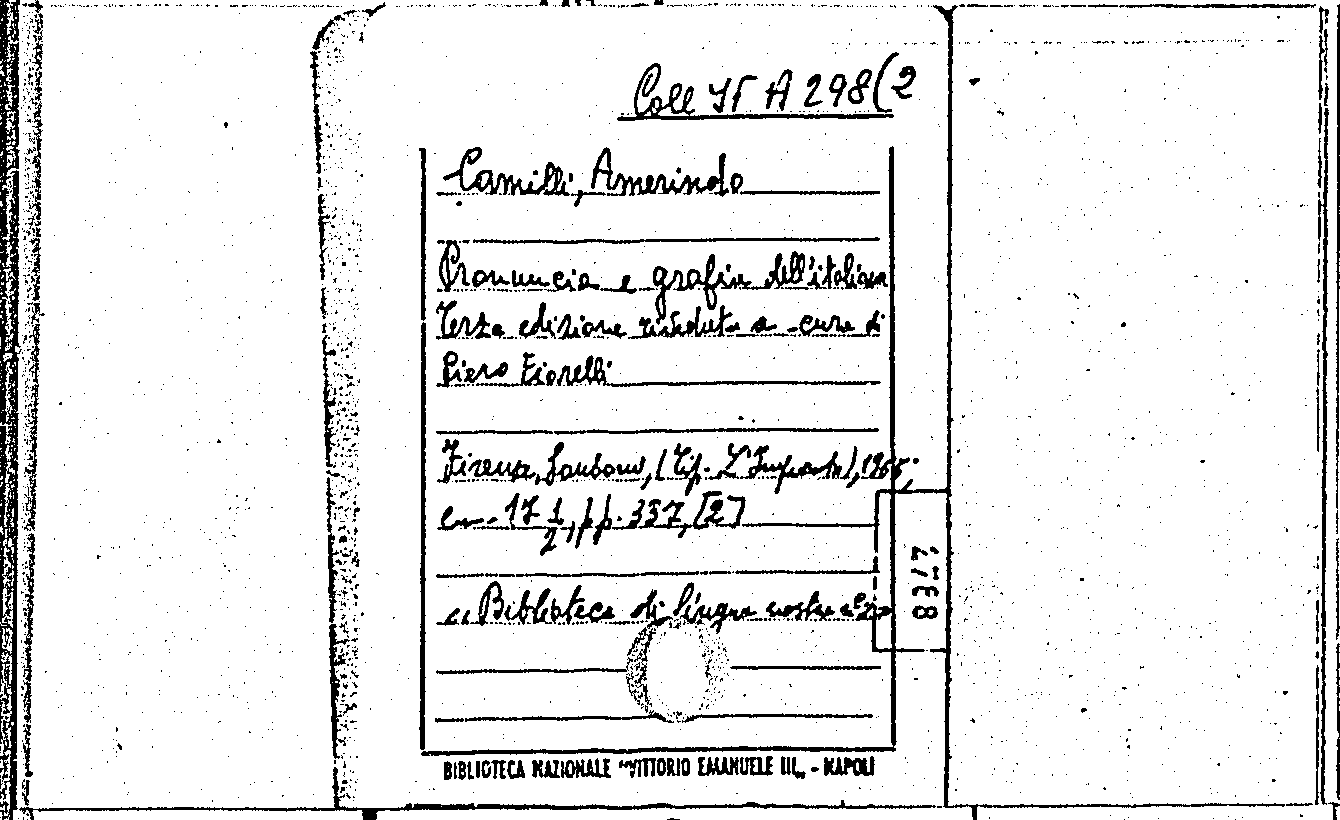 Coll IT A 298(2
Camilli, Amerindo
Pronuncia e grafia dell'italiano
Terza edizione riveduta a cura di
Piero Fiorelli
Firenze, Sansoni, (Tip. L'Impronta), 1965;
cm. 17 1/2, pp. 337, [2]
"Biblioteca di lingua nostra
BIBLIOTECA NAZIONALE "VITTORIO EMANUELE III„ - NAPOLI